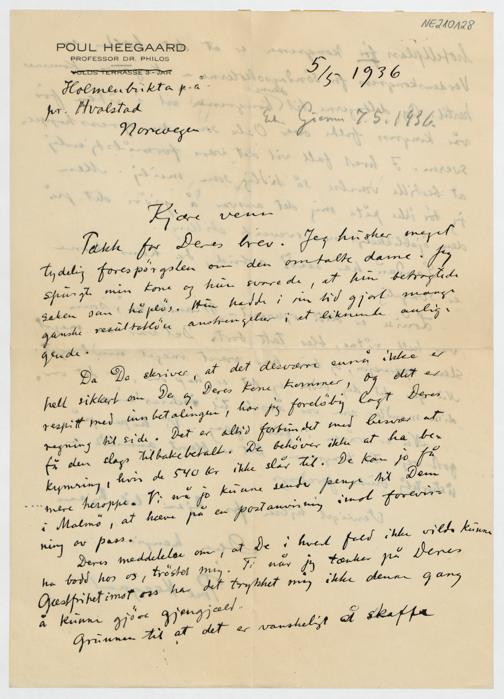 NE210A28
POUL HEEGAARD
PROFESSOR DR. PHILOS
VOLDS TERRASSE 3 - JAR
5/5 1936
Holmenbukta p.å.
pr. Hvalstad
Norwegen
7.5.1936.
Kjære venn
Takk for Deres brev. Jeg husker meget
tydelig forespørgslen om den omtalte dame. Jeg
spurgte min kone og hun svarede, at hun betragtede
saken som håpløs. Hun hadde i sin tid gjort mange
ganske resultatløse anstrengelser i et liknende anlig-
gende.
Da De skriver, at det desværre ennå ikke er
helt sikkert om De og Deres kone kommer, og det er
respitt med innbetalingen, har jeg foreløbig lagt Deres
regning til side. Det er altid forbundet med besvær at
få den slags tilbakebetalt. De behøver ikke at ha be-
kymring, hvis de 540 kr ikke slår til. De kan jo få
mere heroppe. Vi må jo kunne sende penge til Dem
i Malmö, at hæve på en postanvisning imot forevis-
ning av pass.
Deres meddelelse om, at De i hvert fald ikke vilde kunne
ha bodd hos os, trøstet mig. Ti når jeg tænker på Deres
Gæstfrihet imot oss ha det trykket mig ikke denne gang
å kunne gjöre gjengjæld.
Grunnen til at det er vanskeligt å skaffe